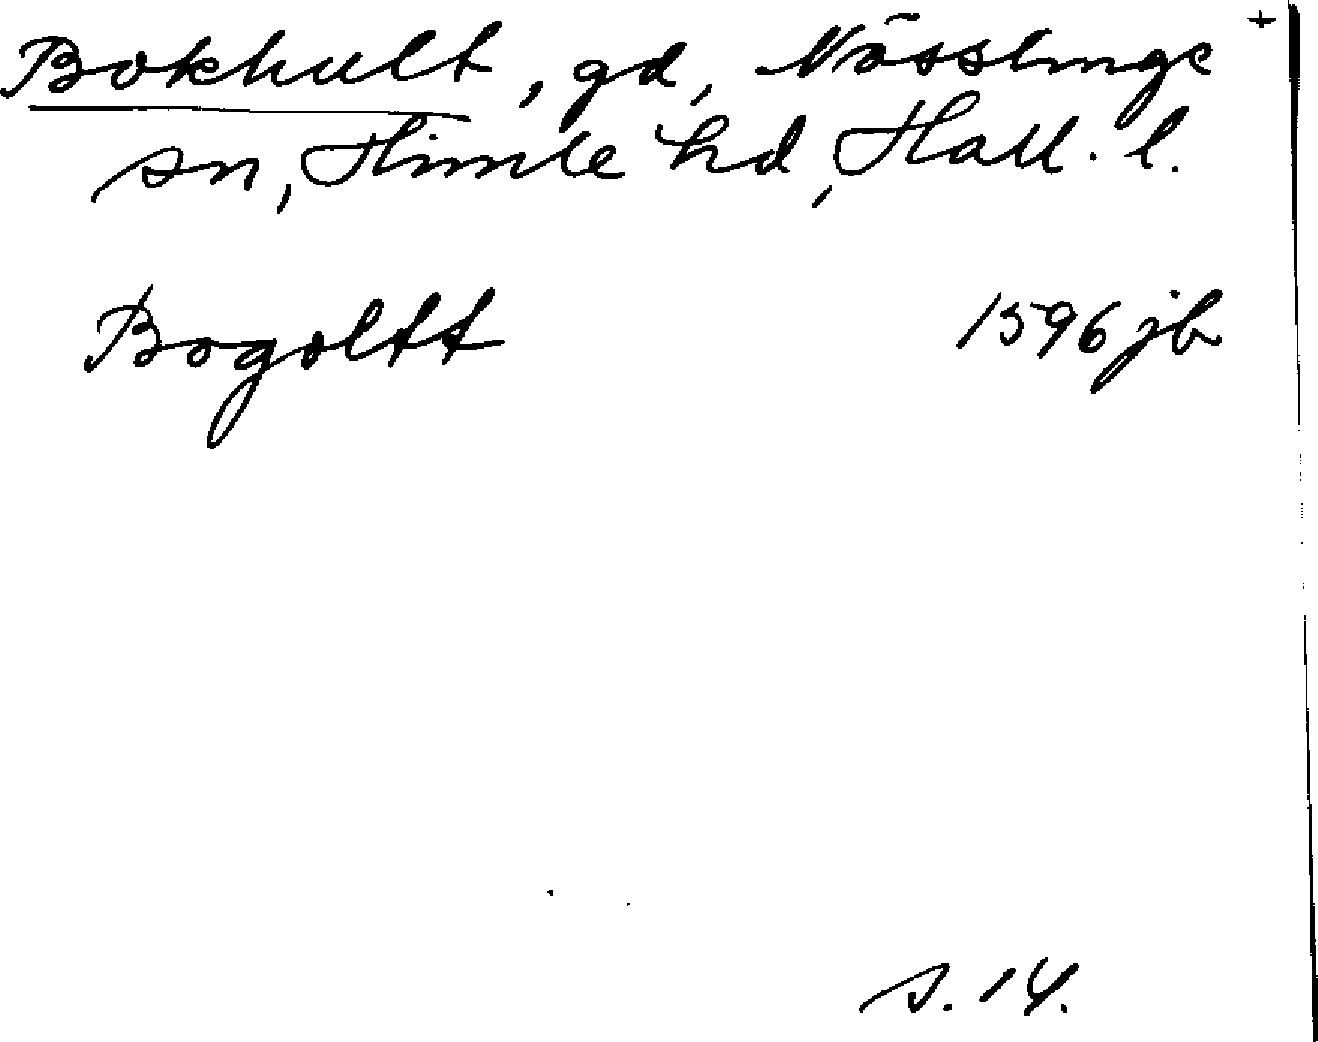 Bokhult, gd, Nösslinge +
sn, Himle hd, Hall. l.
Bogoltt 1596 jb
s. 14.